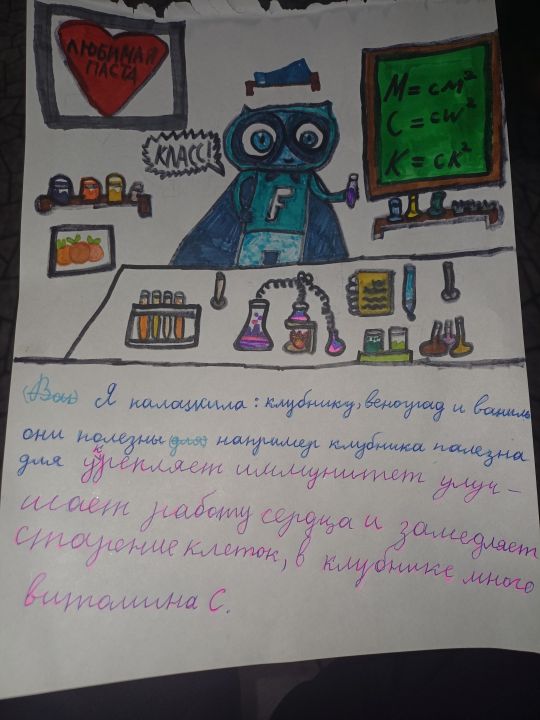 ЛЮБИМАЯ
ПАСТА
КЛАСС!
F
M = cм²
C = cw²
K = cк²
Я налашкила: клубнику, веноград и ваниль
они полезны например клубника палезна
для укрепляет иммунитет улуч-
шает работу сердца и замедляет
старение клеток, в клубнике много
витамина С.